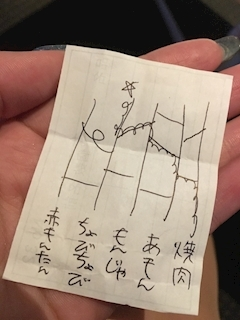 焼肉
あもん
もんじゃ
ちょびちょび
赤もんたん